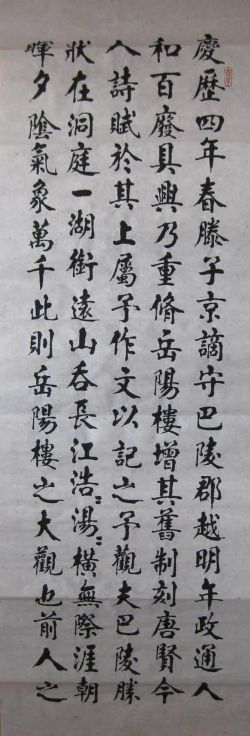 慶歷四年春滕子京謫守巴陵郡越明年政通人
和百廢具興乃重脩岳陽樓增其舊制刻唐賢今
人詩賦於其上屬予作文以記之予觀夫巴陵勝
狀在洞庭一湖銜遠山吞長江浩〻湯〻橫無際涯朝
暉夕陰氣象萬千此則岳陽樓之大觀也前人之